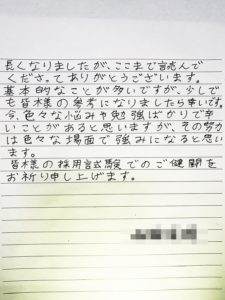 長くなりましたが、ここまで読んで
くださってありがとうございます。
基本的なことが多いですが、少しで
も皆様の参考になりましたら幸いです。
今、色々な悩みや勉強ばかりで辛
いことがあると思いますが、その努力
は色々な場面で強みになると思い
ます。
皆様の採用試験でのご健闘を
お祈り申し上げます。